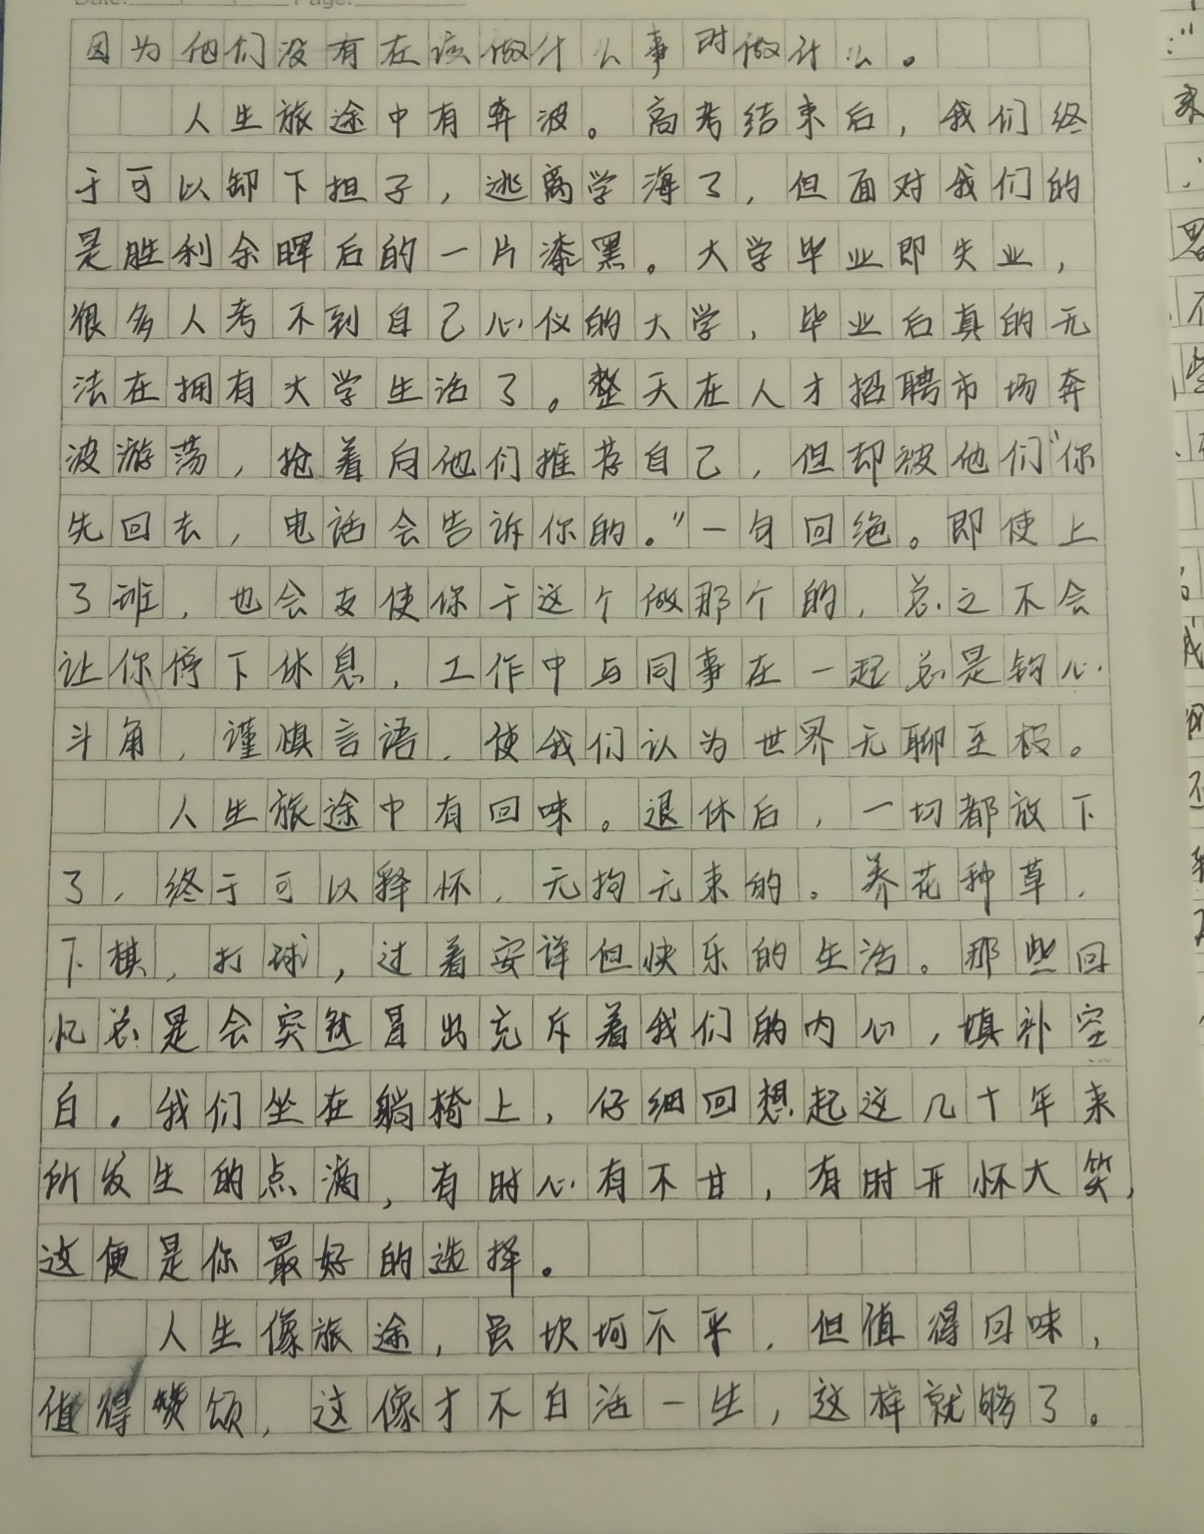 Date: Page:
因为他们没有在该做什么事时做什么。
人生旅途中有奔波。高考结束后，我们终
于可以卸下担子，逃离学海了，但面对我们的
是胜利余晖后的一片漆黑。大学毕业即失业，
很多人考不到自己心仪的大学，毕业后真的无
法在拥有大学生活了。整天在人才招聘市场奔
波游荡，抢着向他们推荐自己，但却被他们“你
先回去，电话会告诉你的。”一句回绝。即使上
了班，也会支使你干这个做那个的，总之不会
让你停下休息，工作中与同事在一起总是钩心
斗角，谨慎言语，使我们认为世界无聊至极。
人生旅途中有回味。退休后，一切都放下
了，终于可以释怀，无拘无束的。养花种草，
下棋，打球，过着安详但快乐的生活。那些回
忆总是会突然冒出充斥着我们的内心，填补空
白。我们坐在躺椅上，仔细回想起这几十年来
所发生的点滴，有时心有不甘，有时开怀大笑，
这便是你最好的选择。
人生像旅途，虽坎坷不平，但值得回味，
值得赞颂，这像才不白活一生，这样就够了。